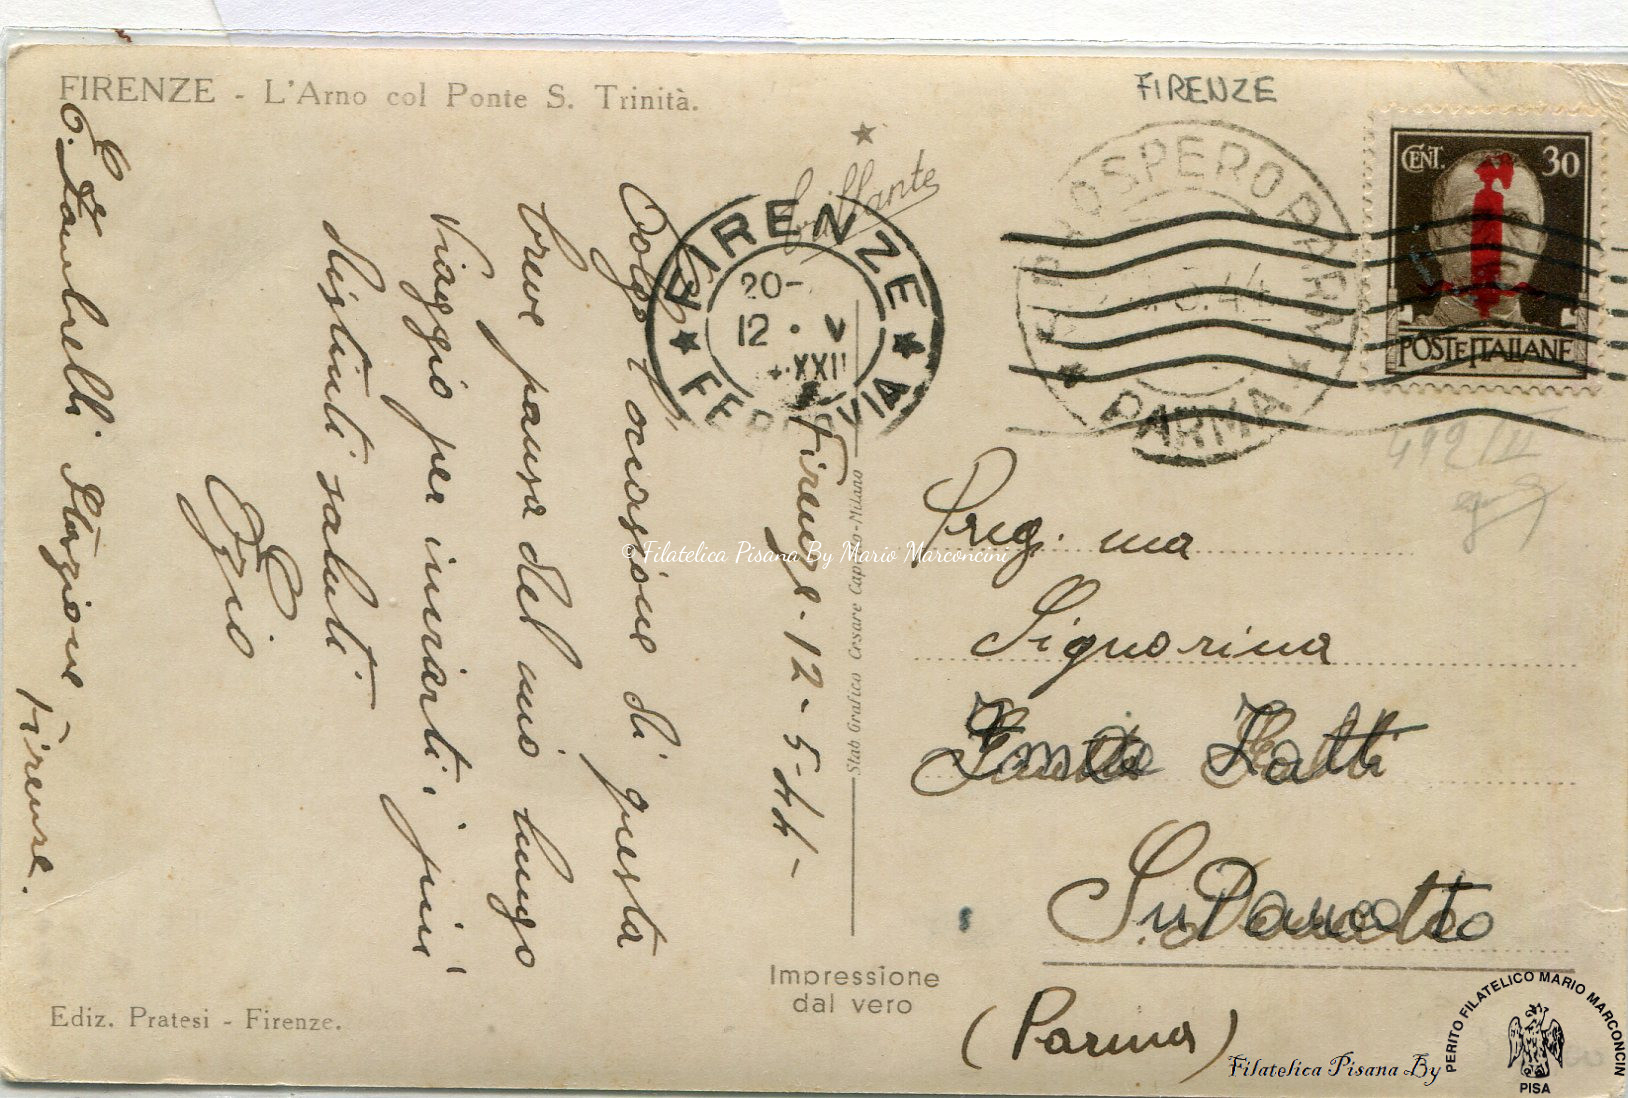 FIRENZE - L'Arno col Ponte S. Trinità.
FIRENZE
brillante
FIRENZE
20-
12 · V
XXII
FERROVIA
S. PROSPERO PARM
5.44
PARMA
CENT. 30
POSTE ITALIANE
Firenze. 12-5-44-
Colgo l'occasione di questa
breve pausa del mio lungo
viaggio per inviarti i più
distinti saluti
Ezio
Stazione Firenze.
Stab Grafico Cesare Capello-Milano
Preg. ma
Signorina
Zatti
(Parma)
Impressione
dal vero
Ediz. Pratesi - Firenze.
© Filatelica Pisana By Mario Marconcini
Filatelica Pisana By
PERITO FILATELICO MARIO MARCONCINI
PISA